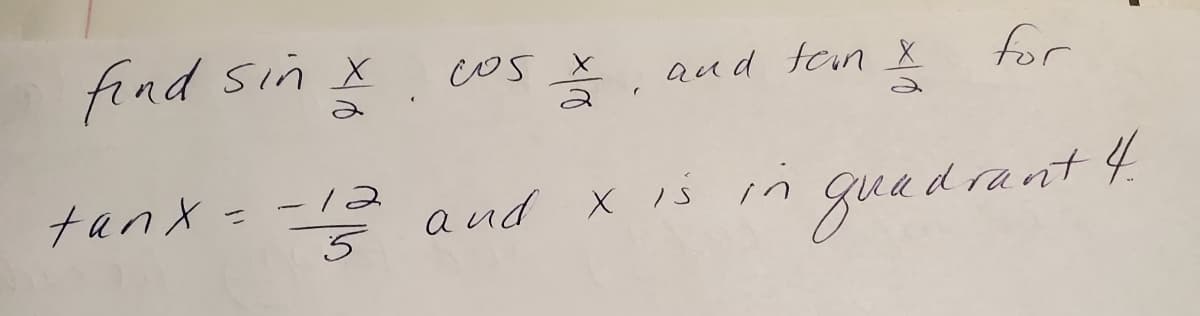 find sin x/2, cos x/2, and tan x/2 for
tanx = -12/5 and x is in quadrant 4.